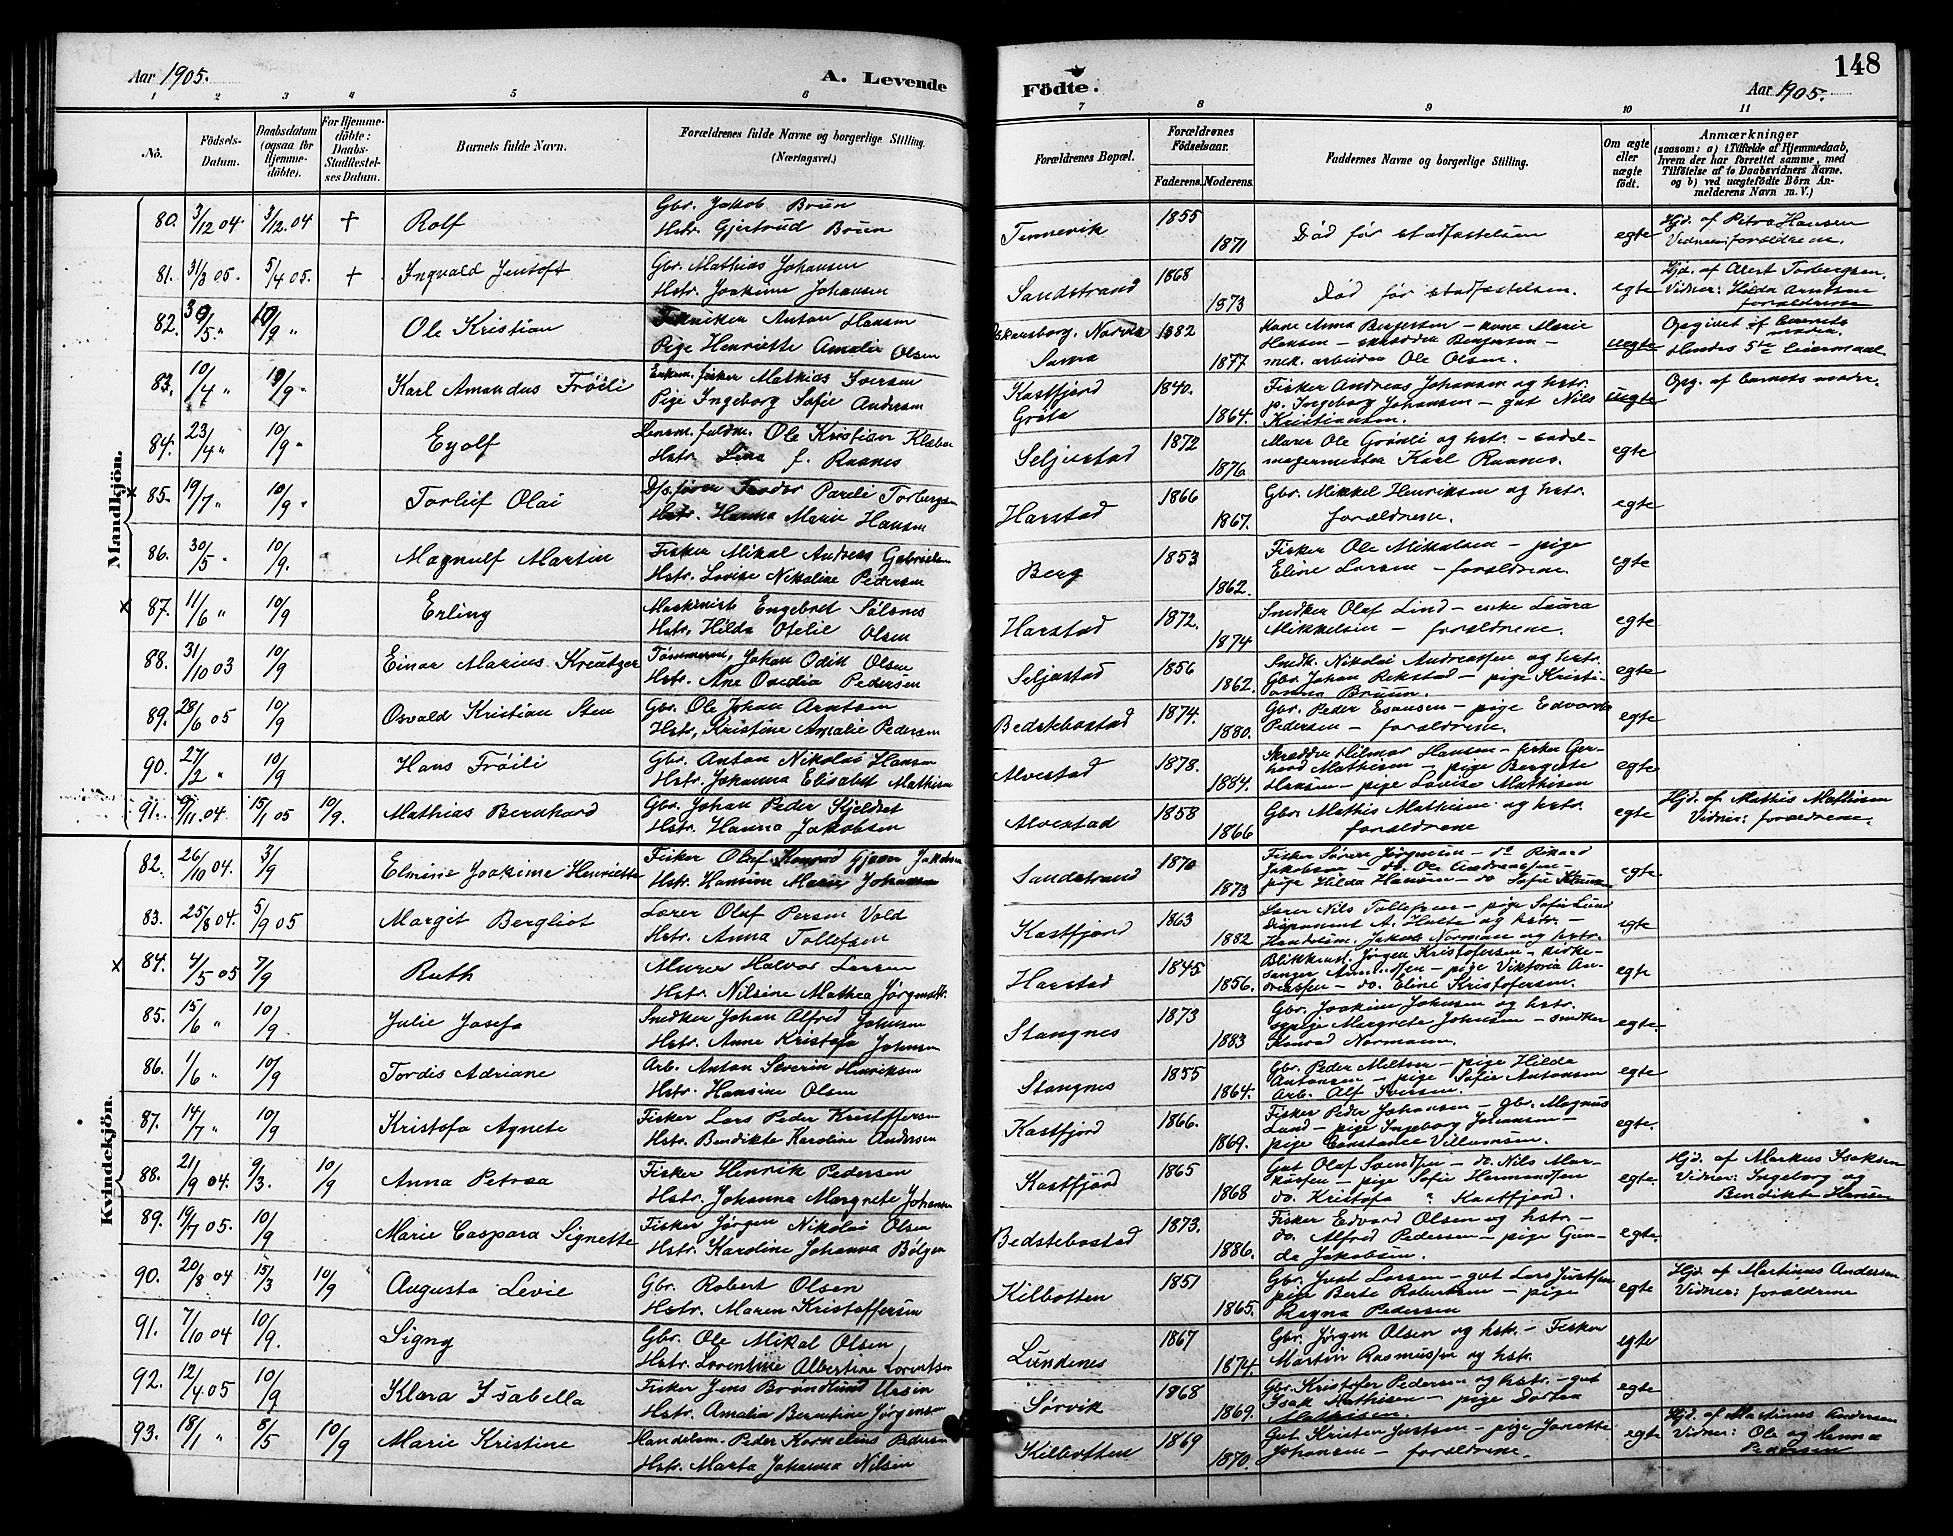 148
Aar 1905.
A. Levende
Födte.
Aar 1905.
1 2 3 4 5 6 7 8 9 10 11
No.
Födsels-
Datum.
Daabsdatum
(ogsaa for
Hjemme-
døbte).
For Hjemme-
döbte:
Daabs-
Stadfæstel-
ses Datum.
Barnets fulde Navn.
Forældrenes fulde Navne og borgerlige Stilling.
(Næringsvei.)
Forældrenes Bopæl.
Forældrenes
Födselsaar.
Faderens. Moderens.
Faddernes Navne og borgerlige Stilling.
Om ægte
eller
uægte
födt.
Anmærkninger
(saasom: a) i Tilfælde af Hjemmedaab,
hvem der har forrettet samme, med
Tilföielse af to Daabsvidners Navne,
og b) ved uægtefödte Börn An-
melderens Navn m. V.)
Mandkjön.
80. 3/12 04 3/12.04 + Rolf
Gbr. Jakob Bruun
Hstr. Gjertrud Bruun
Tennevik 1855 1871 Død før stadfæstelsen egte
Hjd. af Petra Hansen
Vidner: forældrene.
81. 31/3 05. 5/4 05. + Ingvald Jentoft
Gbr. Mathias Johansen
Hstr. Joakime Johansen
Sandstrand 1868 1873 Død før stadfæstelsen. egte
Hjd. af Alest Torbergsen.
Vidner: Hilda Arntsen
forældrene
82. 30/5 " 10/9 " Ole Kristian
Anton Hansen
Pige Henriette Amalie Olsen
Sama 1882 1877. uegte
Kone Anna Bergersen – kone Marie
Hansen – skrædder Bergersen –
mek. arbeider Ole Olsen.
Opgivet af barnets
moder.
Hendes 5te leiermaal
83. 10/4 " 10/9 " Karl Amandus Fröili
Enkem. fisker Mathias Iversen
Pige Ingeborg Sofie Andersen
Kastfjord
Grøta 1840. 1864. uegte
Fisker Andreas Johansen og hstr.
p. Ingeborg Johansen – gut Nils
Kristiansen.
Opg. af barnets moder.
84. 23/4 " 10/9 " Eyolf
Lensm. fuldm. Ole Kristian Klæboe
Hstr. Lina f. Raanes
Seljestad 1872 1876. egte
Murer Ole Grønli og hstr. – sadel-
magermester Karl Raanes.
85. 19/7 " 10/9 " Torleif Olai
Pareli Torbergsen
Hstr. Hanna Marie Hansen
Harstad 1866 1867. egte
Gbr. Mikkel Henriksen og hstr.
forældrene.
86. 30/5 " 10/9. Magnulf Martin
Fisker Mikal Andreas Gabrielsen
Hstr. Lovise Nikoline Pedersen
Berg 1853 1862. egte
Fisker Ole Mikkelsen – pige
Eline Larsen – forældrene
87. 11/6 " 10/9 Erling
Maskinist Engebret Sølsnes
Hstr. Hilda Ofelie Olsen
Harstad 1872. 1874 egte
Snedker Olaf Lind – enke Laura
Mikkelsen – forældrene.
88. 31/10 03 10/9 Einar Marius Kreutzer
Tømmerm. Johan Odin Olsen
Hstr. Ane Ovedia Pedersen
Seljestad 1856 1862. egte
Snedk. Nikolai Andreassen og hstr.
Gbr. Johan Rekstad – pige Kristi-
anna Bruun.
89. 28/6 05 10/9 Osvald Kristian Sten
Gbr. Ole Johan Arntsen
Hstr. Kristine Amalie Pedersen
Bedstebostad 1874. 1880. egte
Gbr. Peder Esaussen – pige Edvarda
Pedersen – forældrene.
90. 27/2 " 10/9 Hans Fröili
Gbr. Anton Nikolai Hansen
Hstr. Johanna Elisabet Mathisen
Alvestad 1878. 1884. egte
Skrædder Hilmar Hansen – fisker Ger-
hard Mathisen – pige Bergette
Hansen – pige Lovise Mathisen
91. 9/11 04 15/1 05 10/9. Mathias Bernhard
Gbr. Johan Peder Kjeldset
Hstr. Hanna Jakobsen
Alvestad 1858 1866 egte
Gbr. Mathis Mathisen og hstr.
forældrene
Hjd. af Mathis Mathisen
Vidner: forældrene.
Kvindekjön.
82. 26/10 04. 3/9 Elmine Joakime Henriette
Fisker Olaf Konrad Gjæver Jakobsen
Hstr. Hansine Marie Johansen
Sandstrand 1870 1873 egte
Fisker Søren Jørgensen – do Rikard
Jakobsen – do. Ole Andreassen –
pige Hilda Hansen – do Sofie
83. 25/8 04. 5/9 05 Margit Bergliot
Lærer Olaf Persen Vold
Hstr. Anna Tollefsen
Kastfjord 1863 1882 egte
Lærer Nils Tollefsen – pige Sofie Lind
Disponent A. Holte og hstr. –
Handelsm. Jakob Normann og hstr.
84. 4/5 05 7/9 Ruth
Murer Halvor Larsen
Hstr. Nilsine Mathea Jørgensdtr.
Harstad 1845 1856. egte
Blikkensl. Jørgen Kristofersen – kirke-
sanger – pige Viktoria An-
dreassen – do. Eline Kristofersen.
85. 15/6 " 10/9. Julie Josefa
Snedker Johan Alfred Johnsen
Hstr. Anne Kristofa Johnsen
Stangnes 1873 1883 egte
Gbr. Joakim Johnsen og hstr.
pige Margrete Johnsen – snedker
Konrad Normann.
86. 1/6 " 10/9 Tordis Adriane
Arb. Anton Severin Henriksen
Hstr. Hansine Olsen
Stangnes 1855 1864. egte
Gbr. Peder Meltser – pige Hilda
Antonsen – pige Sofie Antonsen
Arb. Alf Iversen.
87. 14/7 " 10/9 Kristofa Agnete
Fisker Lars Peder Kristoffersen
Hstr. Bendikte Karoline Andersen
Kastfjord 1866. 1869. egte.
Fisker Peder Johansen – gbr. Magnus
Lund – pige Ingeborg Johansen –
pige Constance Villumsen.
88. 21/9 04. 9/3. 10/9 Anna Petrea
Fisker Henrik Pedersen
Hstr. Johanna Margrete Johansen
Kastfjord 1865 1868 egte.
Gut Olaf Svendsen – do. Nils Mar-
kussen – pige Sofie Hermandsen
do. Kristofa " Kastfjord.
Hjd. af Markus Isaksen
Vidner: Ingeborg og
Bendikte Hansen
89. 19/7 05. 10/9 Marie Caspara Signette
Fisker Jørgen Nikolai Olsen
Hstr. Karoline Johanna Bölgen
Bedstebostad 1873. 1886. egte.
Fisker Edvard Olsen og hstr. –
do. Alfred Pedersen – pige Gun-
da Jakobsen.
90. 20/8 04 15/3 10/9 Augusta Levie
Gbr. Robert Olsen
Hstr. Maren Kristoffersen
Kilbotten 1851 1865. egte
Gbr. Just Larsen – gut Lars Justsen
pige Berte Robertsen – pige
Ragna Pedersen
Hjd. af Martinus Andersen
Vidner: forældrene
91. 7/10 04 10/9. Signy
Gbr. Ole Mikal Olsen
Hstr. Lorentine Albertine Lorentsen
Lundenes 1867 1874. egte
Gbr. Jørgen Olsen og hstr. – Fisker
Martin Rasmussen og hstr.
92. 12/4.05 10/9 Klara Isabella
Fisker Jens Brøndlund Ursin
Hstr. Amalia Berentine Jørgensen
Sørvik 1868 1869. egte
Gbr. Kristofer Pedersen og hstr. – gut
Isak Mathisen – pige Dortea
Mathisen.
93. 18/1 " 8/5 10/9 Marie Kristine
Handelsm. Peder Kornelius Pedersen
Hstr. Marta Johanna Nilsen
Kilbotten 1869 1870. egte
Gut Kristen Justsen – pige Janette
Johansen – forældrene.
Hjd. af Martinus Andersen
Vidner: Ole og Hanna
Pedersen